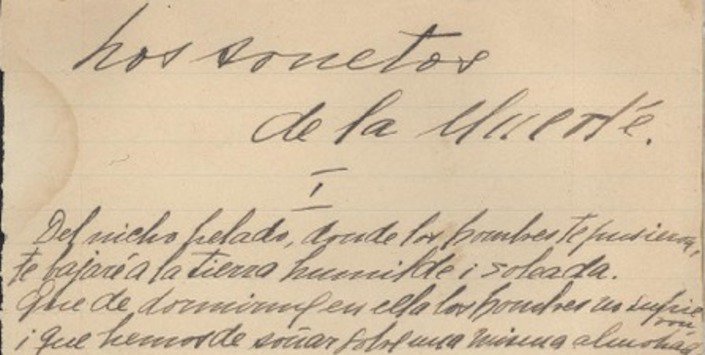 Los sonetos
de la Muerte.
I
Del nicho helado, donde los hombres te pusieron,
te bajaré a la tierra humilde i soleada.
Que he de dormirme en ella los hombres no supieron,
i que hemos de soñar sobre una misma almohada